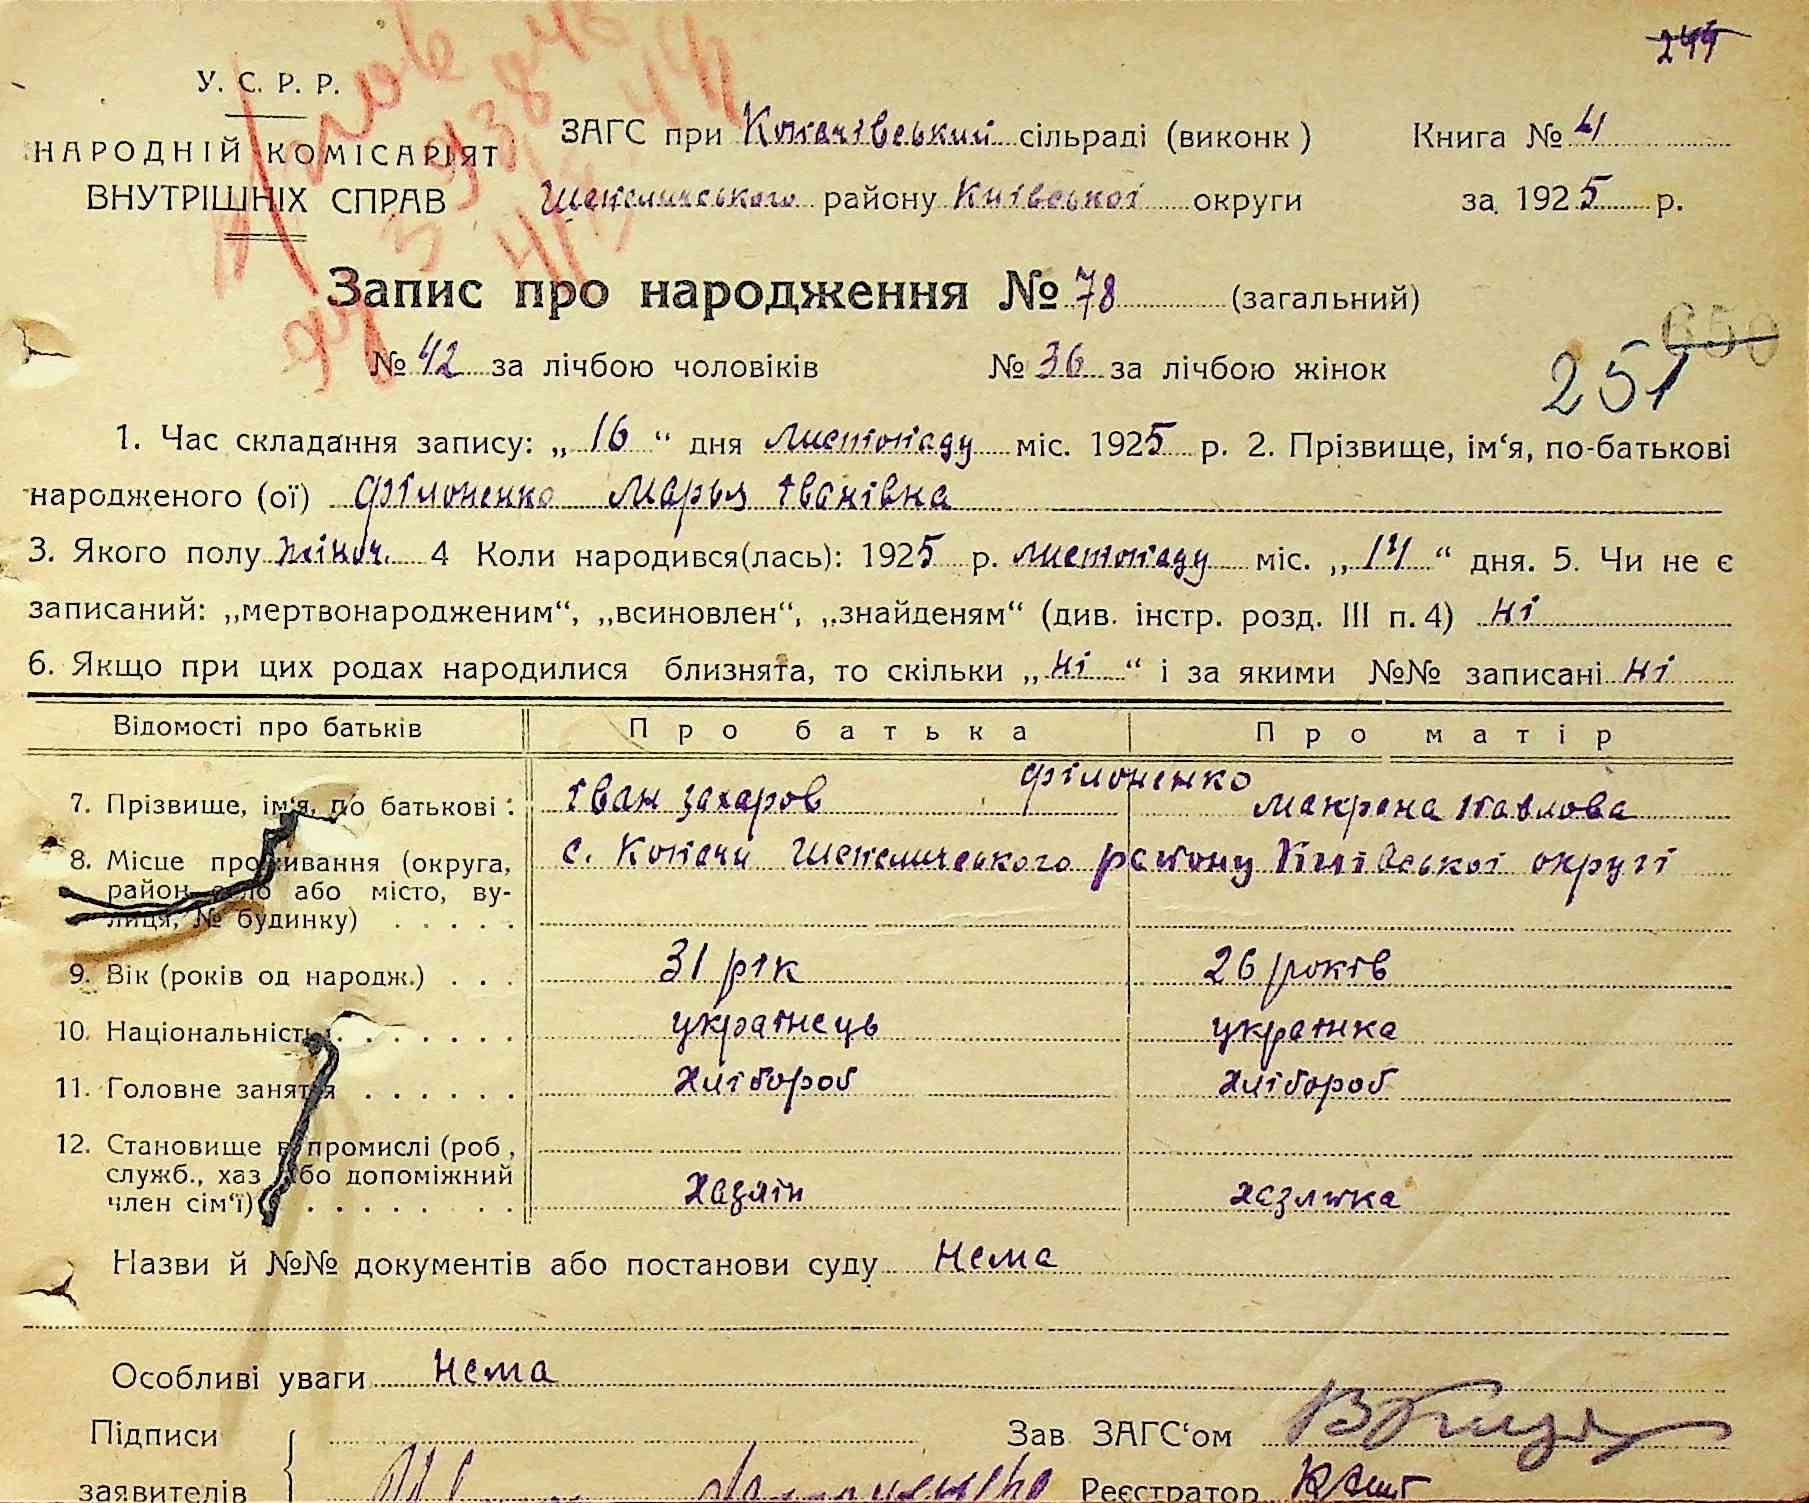 244
У. С. Р. Р.
НАРОДНІЙ КОМІСАРІЯТ
ВНУТРІШНІХ СПРАВ
ЗАГС при Копачівський сільраді (виконк)
Книга № 4
Шепелицького району Київської округи
за 1925 р.
Запис про народження № 78 (загальний)
№ 42 за лічбою чоловіків № 36 за лічбою жінок
650
251
1. Час складання запису: „ 16 “ дня листопаду міс. 1925 р. 2. Прізвище, ім‘я, по-батькові
народженого (ої) Філоненко Марья Іванівна
3. Якого полу жіноч. 4 Коли народився(лась): 1925 р. листопаду міс. „ 14 “ дня. 5. Чи не є
записаний: „мертвонародженим“, „всиновлен“, „знайденям“ (див. інстр. розд. III п. 4) ні
6. Якщо при цих родах народилися близнята, то скільки „ ні “ і за якими №№ записані ні
Відомості про батьків Про батька Про матір
Філоненко
7. Прізвище, ім‘я, по батькові: Іван Захаров Макрена Павлова
8. Місце проживання (округа, с. Копачи Шепелицького району Київської округі
район, село або місто, ву-
лиця, № будинку)
9. Вік (років од народж.) 31 рік 26 років
10. Національність українець українка
11. Головне заняття хлібороб хлібороб
12. Становище в промислі (роб.,
служб., хаз або допоміжний
член сім‘ї) хазяїн хазяйка
Назви й №№ документів або постанови суду Нема
Особливі уваги Нема
Підписи
Зав ЗАГС‘ом
заявителів
Реєстратор